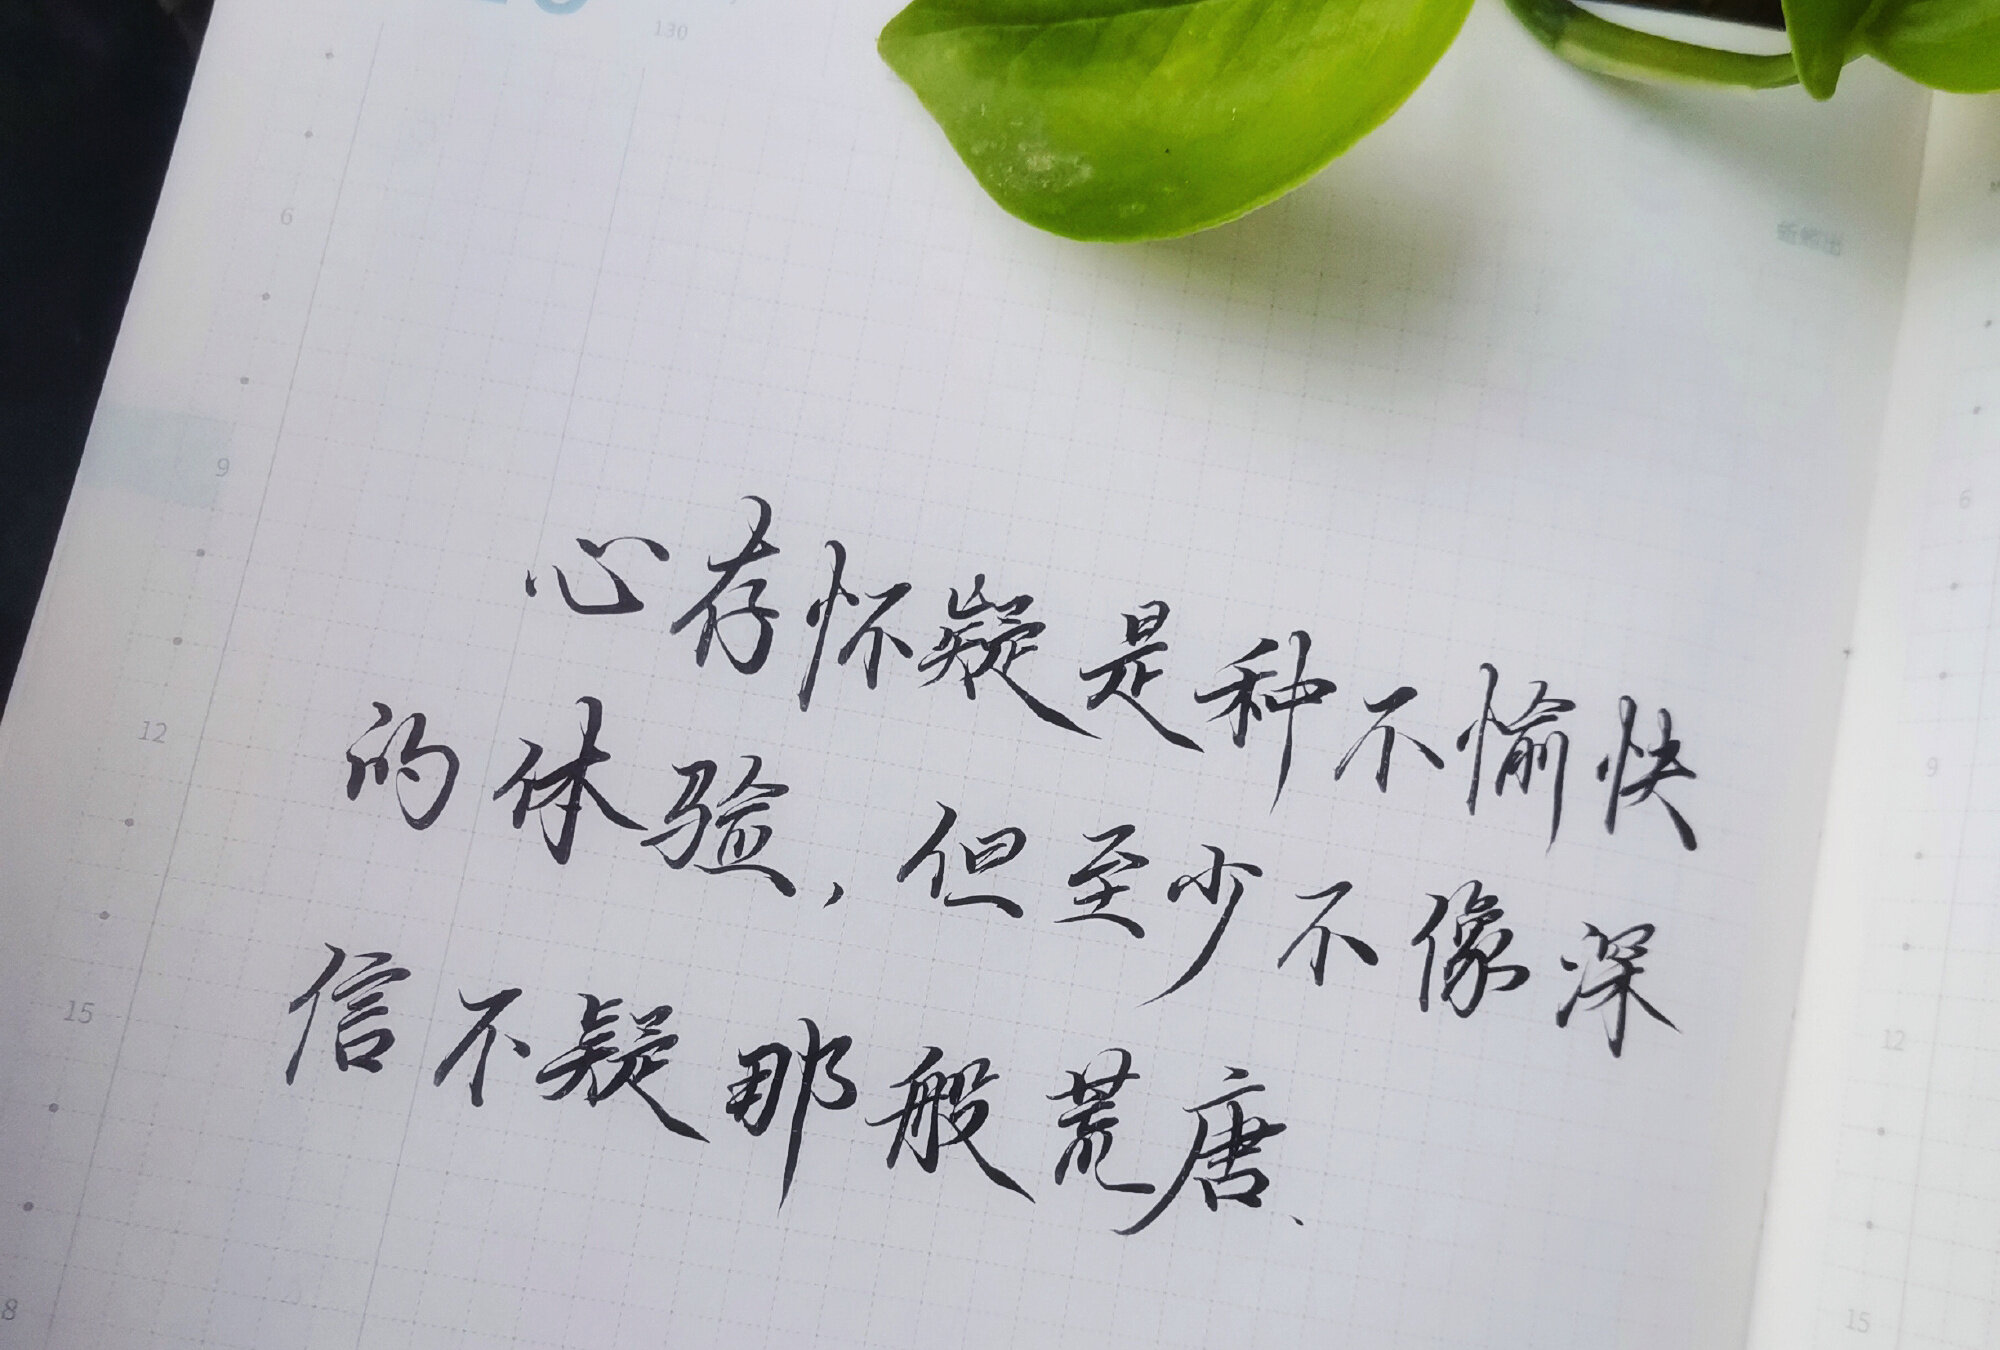 130
6
9
12
15
8
心存怀疑是种不愉快
的体验,但至少不像深
信不疑那般荒唐、
6
9
12
15